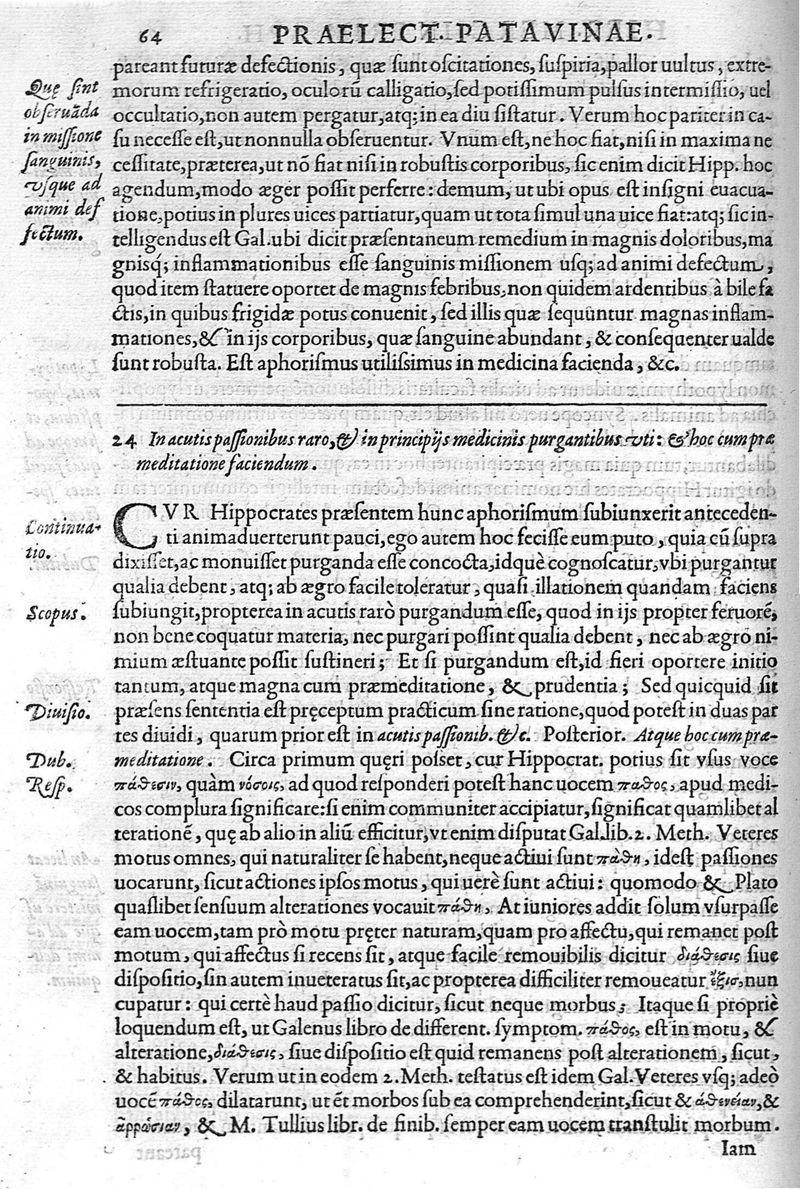 64 PRAELECT. PATAVINAE.
pareant futuræ defectionis, quæ sunt oscitationes, suspiria, pallor uultus, extre-
Quę sint
obseruāda
in missione
sanguinis,
vsque ad
animi def
fectum.
morum refrigeratio, oculorū calligatio, sed potissimum pulsus intermissio, uel
occultatio, non autem pergatur, atq; in ea diu sistatur. Verum hoc pariter in ca-
su necesse est, ut nonnulla obseruentur. Vnum est, ne hoc fiat, nisi in maxima ne
cessitate, præterea, ut nō fiat nisi in robustis corporibus, sic enim dicit Hipp. hoc
agendum, modo æger possit perferre: demum, ut ubi opus est insigni euacua-
tione, potius in plures uices partiatur, quam ut tota simul una uice fiat: atq; sic in-
telligendus est Gal. ubi dicit præsentaneum remedium in magnis doloribus, ma
gnisq́; inflammationibus esse sanguinis missionem usq; ad animi defectum,
quod item statuere oportet de magnis febribus, non quidem ardentibus à bile fa
ctis, in quibus frigidæ potus conuenit, sed illis quæ sequūntur magnas inflam-
mationes, & in ijs corporibus, quæ sanguine abundant, & consequenter ualde
sunt robusta. Est aphorismus utilissimus in medicina facienda, &c.
24 In acutis passionibus raro, & in principijs medicinis purgantibus vti: & hoc cum præ
meditatione faciendum.
Continua-
tio.
CVR Hippocrates præsentem hunc aphorismum subiunxerit anteceden-
ti animaduerterunt pauci, ego autem hoc fecisse eum puto, quia cū supra
dixisset, ac monuisset purganda esse concocta, idquè cognoscatur, vbi purgantur
qualia debent, atq; ab ægro facile toleratur, quasi illationem quandam faciens
Scopus.
subiungit, propterea in acutis rarò purgandum esse, quod in ijs propter feruorē,
non bene coquatur materia, nec purgari possint qualia debent, nec ab ægro ni-
mium æstuante possit sustineri; Et si purgandum est, id fieri oportere initio
tantum, atque magna cum præmeditatione, & prudentia; Sed quicquid sit
Diuisio.
præsens sententia est pręceptum practicum sine ratione, quod potest in duas par
tes diuidi, quarum prior est in acutis passionib. &c. Posterior. Atque hoc cum præ-
Dub.
meditatione. Circa primum quęri posset, cur Hippocrat. potius sit vsus voce
Resp.
πάθεσιν, quàm νόσοις, ad quod responderi potest hanc uocem παθος, apud medi-
cos complura significare: si enim communiter accipiatur, significat quamlibet al
terationē, quę ab alio in aliū efficitur, vt enim disputat Gal. lib. 2. Meth. Veteres
motus omnes, qui naturaliter se habent, neque actiui sunt πάθη, idest passiones
uocarunt, sicut actiones ipsos motus, qui uerè sunt actiui: quomodo & Plato
quaslibet sensuum alterationes vocauit πάθη, At iuniores addit solum vsurpasse
eam uocem, tam prò motu pręter naturam, quam pro affectu, qui remanet post
motum, qui affectus si recens sit, atque facile remouibilis dicitur διάθεσις siue
dispositio, sin autem inueteratus sit, ac propterea difficiliter remoueatur ἕξις, nun
cupatur: qui certè haud passio dicitur, sicut neque morbus; Itaque si propriè
loquendum est, ut Galenus libro de different. symptom. πάθος, est in motu, &
alteratione, διάθεσις, siue dispositio est quid remanens post alterationem, sicut,
& habitus. Verum ut in eodem 2. Meth. testatus est idem Gal. Veteres vsq; adeò
uocē πάθος, dilatarunt, ut ēt morbos sub ea comprehenderint, sicut & ἀθενείαν, &
ἀῤῥωσίαν, & M. Tullius libr. de finib. semper eam uocem transtulit morbum.
Iam